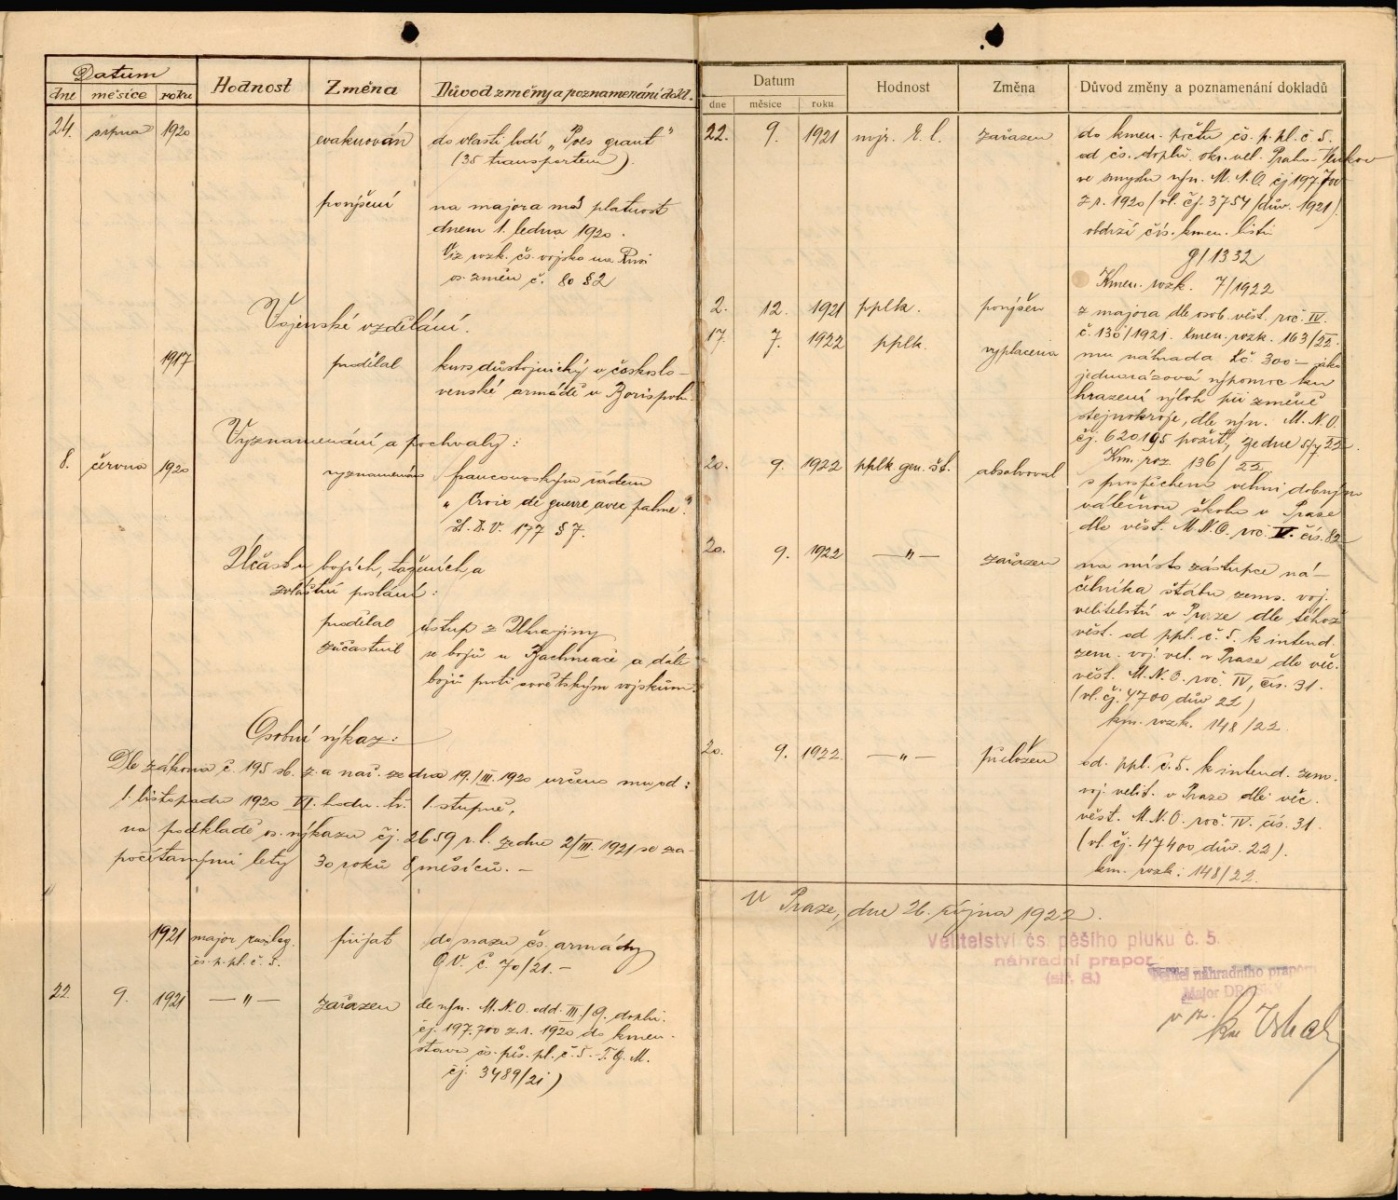 Datum
dne měsíce roku Hodnost Změna Důvod změny a poznamenání dokl.
24. srpna 1920 evakuován do vlasti lodí „Pres grant"
(35 transportem).
povýšení na majora má platnost
dnem 1. ledna 1920.
Viz rozk. čs. vojska na Rusi
o změn č. 80 § 2
Vojenské vzdělání.
1917 prodělal kurs důstojnický v českoslo-
venské armádě v Borispolu.
Vyznamenání a pochvaly:
8. června 1920 vyznamenán francouzským řádem
„Croix de guerre avec palme".
D.V. 177 § 7.
Účast v bojích, taženích a
zvláštní poslání:
prodělal ústup z Ukrajiny
zúčastnil se bojů u Bachmače a dále
bojů proti sovětským vojskům.
Osobní výkaz:
Dle zákona č. 195 sb. z. a nař. ze dne 19./III. 1920 určena mu od:
1 listopadu 1920 VI. hodn. tř. 1. stupně,
na podkladě os. výkazu čj. 2659 r. l. ze dne 2/III. 1921 se za-
počítanými lety 30 roků 8 měsíců. —
1921 major rusleg. přijat do svazu čs. armády
čs. p. pl. č. 5. O.V. č. 70/21. —
22 9. 1921 — „ — zařazen dle výn. M.N.O. odd. III/9. doplň.
čj. 197.700 z r. 1920 do kmen.
stavu čs. pěš. pl. č. 5. T.G.M.
čj. 3489/21)
Datum
dne měsíce roku Hodnost Změna Důvod změny a poznamenání dokladů
22. 9. 1921 mjr. r. l. zařazen do kmen. počtu čs. p. pl. č 5.
od čs. doplň. okr. vel. Praha-
ve smyslu výn. M.N.O. čj 197.700
z r. 1920 (vl. čj. 3754/dův. 1921)
obdrží čís. kmen. listu
9/1332
Kmen. rozk. 7/1922
2. 12. 1921 pplk. povýšen z majora dle osob. věst. roč. IV.
č. 130/1921. kmen. rozk. 163/22.
17. 7. 1922 pplk. vyplacena mu náhrada Kč 300- jako
jednorázová výpomoc ku
hrazení výloh při změně
stejnokroje, dle výn. M.N.O.
čj. 620195 ze dne 5/7 22.
Km. roz 136/22
20. 9. 1922 pplk gen. št. absolvoval s prospěchem velmi dobrým
válečnou školu v Praze
dle věst. M.N.O. roč. V. čís. 82
20. 9. 1922 — „ — zařazen na místo zástupce ná-
čelníka štábu zems. voj.
velitelství v Praze dle téhož
věst. od ppl. č. 5. k intend.
zem. voj. vel. v Praze dle věc.
věst. M.N.O. roč. IV, čís. 31.
(vl. čj. 4700 dův 22)
km. rozk. 148/22.
20. 9. 1922 — „ — přeložen od. ppl. č. 5. k intend. zem.
voj. velit. v Praze dle věc.
věst. M.N.O. roč. IV. čís. 31.
(vl. čj. 47400 dův. 22).
km. rozk. 148/22.
V Praze, dne 26. října 1922.
Velitelství čs. pěšího pluku č. 5.
náhradní prapor
Velitel náhradního praporu
Major
v z.